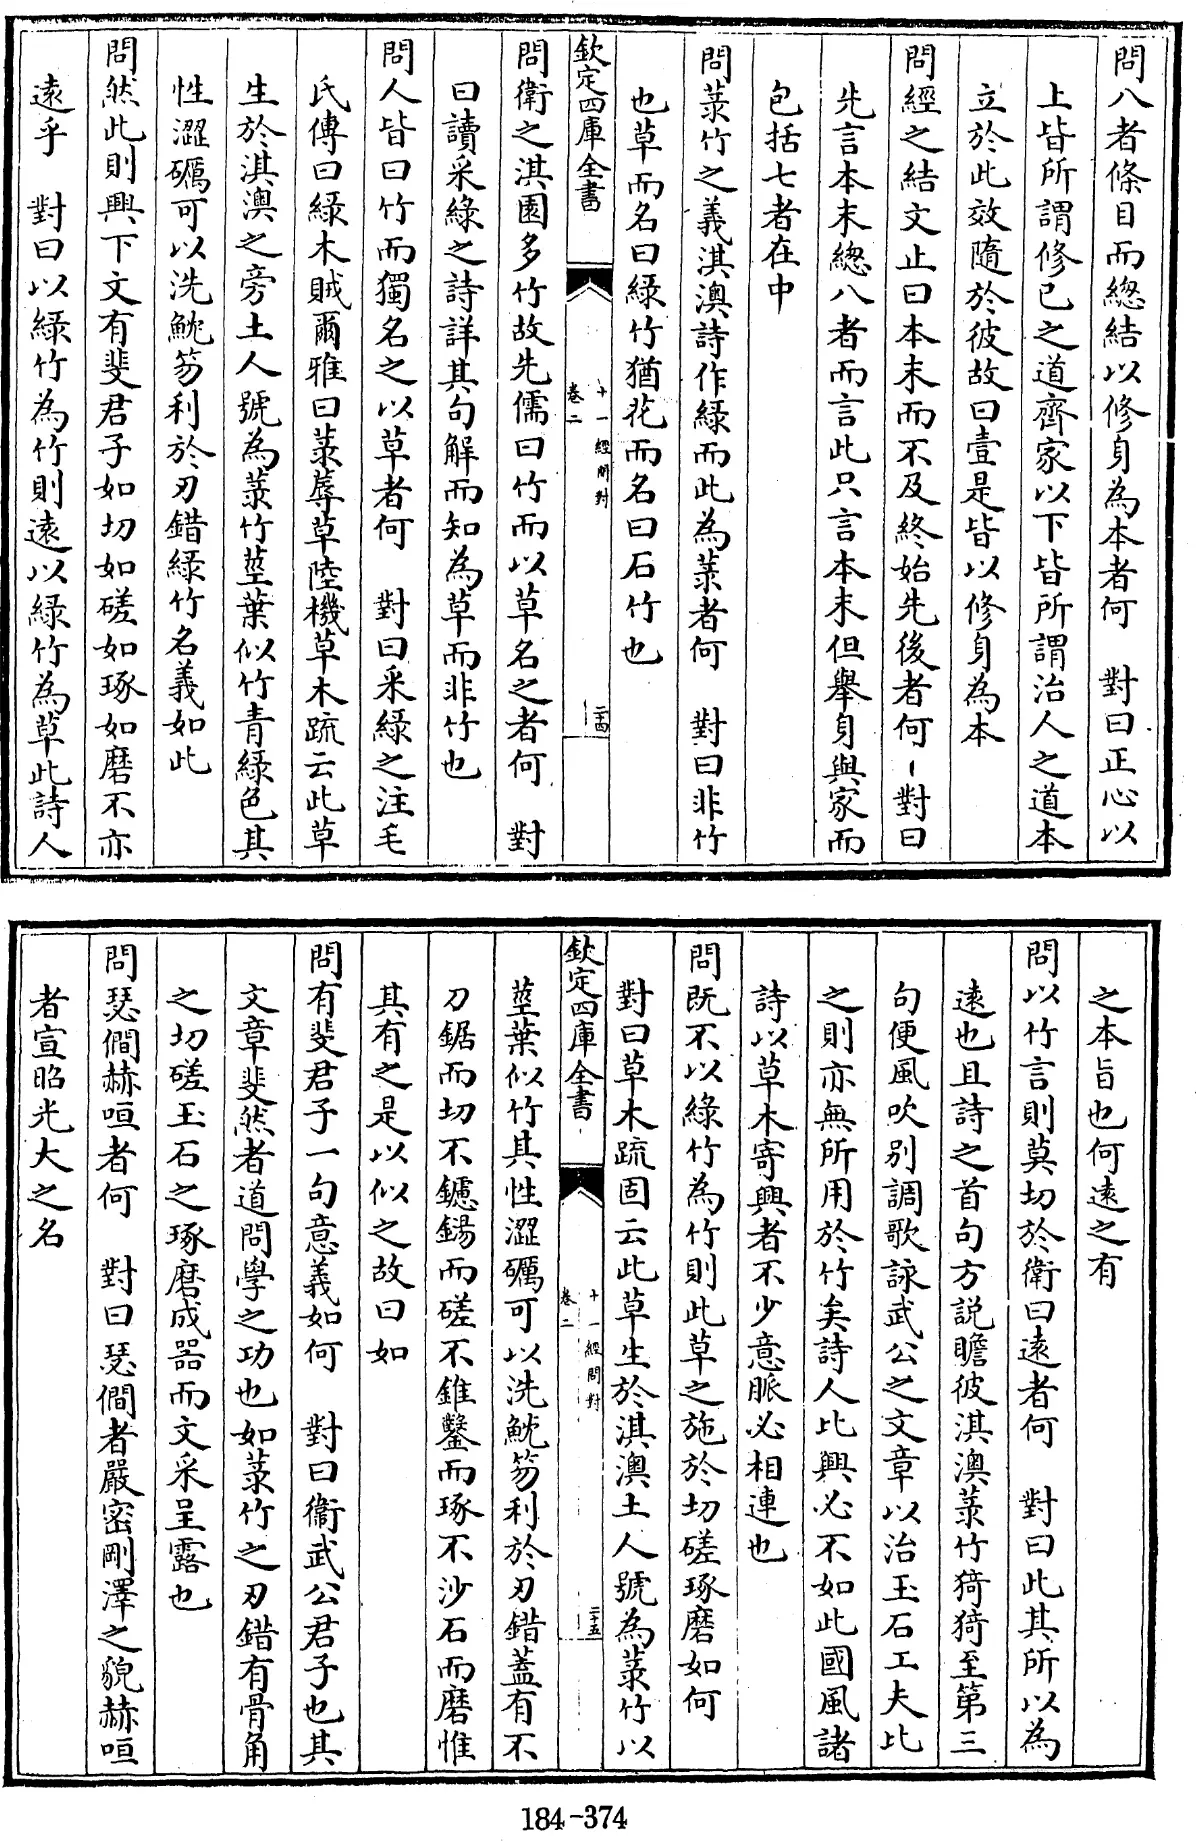 問八者條目而總結以修身為本者何　對曰正心以
上皆所謂修己之道齊家以下皆所謂治人之道本
立於此效隨於彼故曰壹是皆以修身為本
問經之結文止曰本末而不及終始先後者何　對曰
先言本末總八者而言此只言本末但舉身與家而
包括七者在中
問菉竹之義淇澳詩作綠而此為菉者何　對曰非竹
也草而名曰綠竹猶花而名曰石竹也
欽定四庫全書
十一經問對
卷二
二十四
問衛之淇園多竹故先儒曰竹而以草名之者何　對
曰讀采綠之詩詳其句解而知為草而非竹也
問人皆曰竹而獨名之以草者何　對曰采綠之注毛
氏傳曰綠木賊爾雅曰菉蓐草陸機草木疏云此草
生於淇澳之旁土人號為菉竹莖葉似竹青綠色其
性澀礪可以洗觥笏利於刃錯綠竹名義如此
問然此則興下文有斐君子如切如磋如琢如磨不亦
遠乎　對曰以綠竹為竹則遠以綠竹為草此詩人
之本旨也何遠之有
問以竹言則莫切於衛曰遠者何　對曰此其所以為
遠也且詩之首句方說瞻彼淇澳菉竹猗猗至第三
句便風吹別調歌詠武公之文章以治玉石工夫比
之則亦無所用於竹矣詩人比興必不如此國風諸
詩以草木寄興者不少意脈必相連也
問既不以綠竹為竹則此草之施於切磋琢磨如何
對曰草木疏固云此草生於淇澳土人號為菉竹以
欽定四庫全書
十一經問對
卷二
二十五
莖葉似竹其性澀礪可以洗觥笏利於刃錯蓋有不
刀鋸而切不鑢鐋而磋不錐鑿而琢不沙石而磨惟
其有之是以似之故曰如
問有斐君子一句意義如何　對曰衛武公君子也其
文章斐然者道問學之功也如菉竹之刃錯有骨角
之切磋玉石之琢磨成器而文采呈露也
問瑟僩赫咺者何　對曰瑟僩者嚴密剛澤之貌赫咺
者宣昭光大之名
184-374